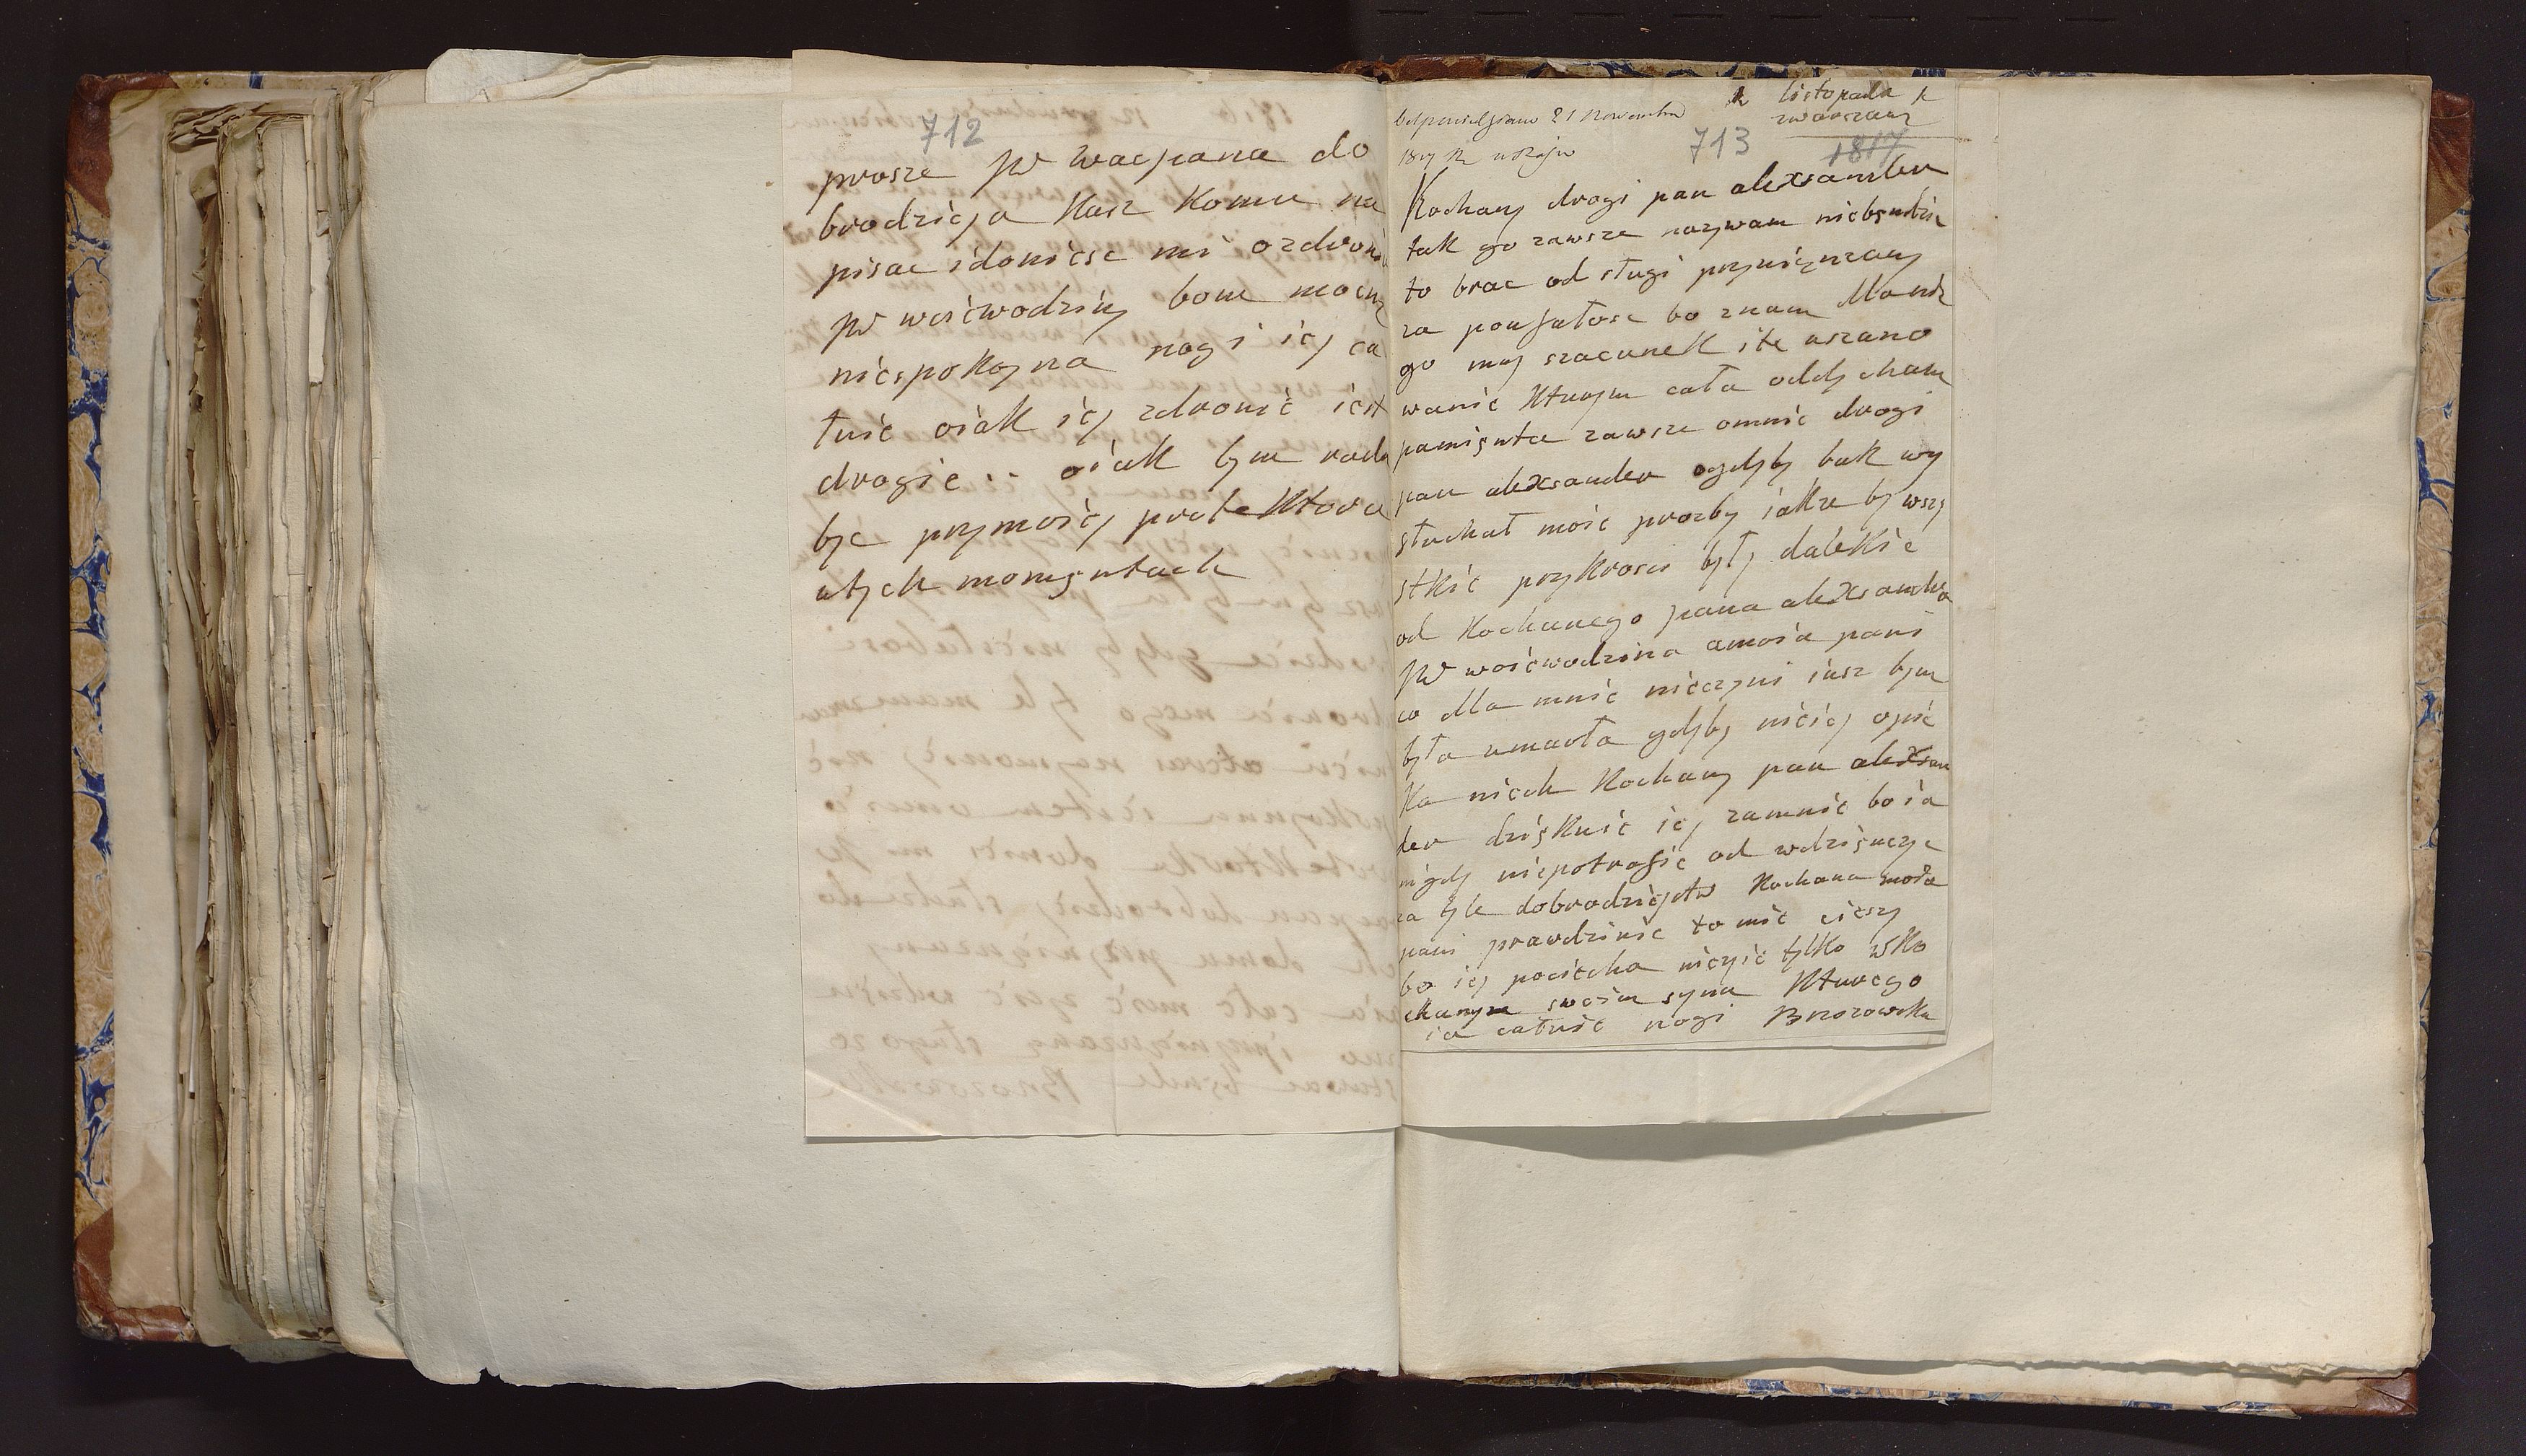 712
prosze JW wacpana do
brodzieja Kasz Komu na
pisac idoniesc mi ozdrowiu
JW woiewodziny bom mocno
niespokoyna nogi iey ca
łuie oiak iey zdrowie iest
drogie .. oiak bym rada
byc przymoiey protektorce
wtych momentach
odpowiedziano 21 Novembra
listopada
zwarszawy
713
1817
Kochany drogi pan alexsander
tak go zawsze nazywam niebendzie
to brac od sługi przywiązaney
za poufałosc bo znam dla nie
go moy szacunek ite uszano
wanie Kturym cała oddycham
pamięnta zawsze omnie drogi
pan alexsander ogdyby buk wy
słuchał moie prozby iakze by wszy
stkie przykrosci były dalekie
od Kochanego pana alexsandra
JW woiewodzina amoia pani
co dla mnie nieczyni iusz bym
była umarła gdyby nieiey opie
ka niech Kochany pan alexsan
der dziękuie iey zamnie bo ia
nigdy niepotrafie od wdzięnczyc
za tyle dobrodzieystw Kochana moia
pani prawdziwie to mie cieszy
bo iey pociecha nieżyie tylko wko
chanym swoim synu Kturego
ia całuie nogi Brzozowska